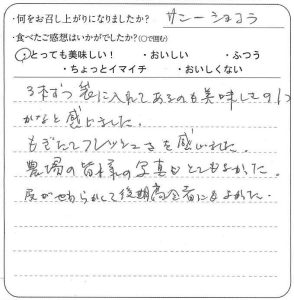 ・何をお召し上がりになりましたか？ サニーショコラ
・食べたご感想はいかがでしたか？（○で囲む）
・とっても美味しい！ ・おいしい ・ふつう
・ちょっとイマイチ ・おいしくない
3本ずつ袋に入れてあるのも美味しさの1つ
かなと感じました。
もぎたてフレッシュさを感じました。
農場の皆様の写真もとてもよかった。
皮がやわらかくて後期高令者にもよかった。